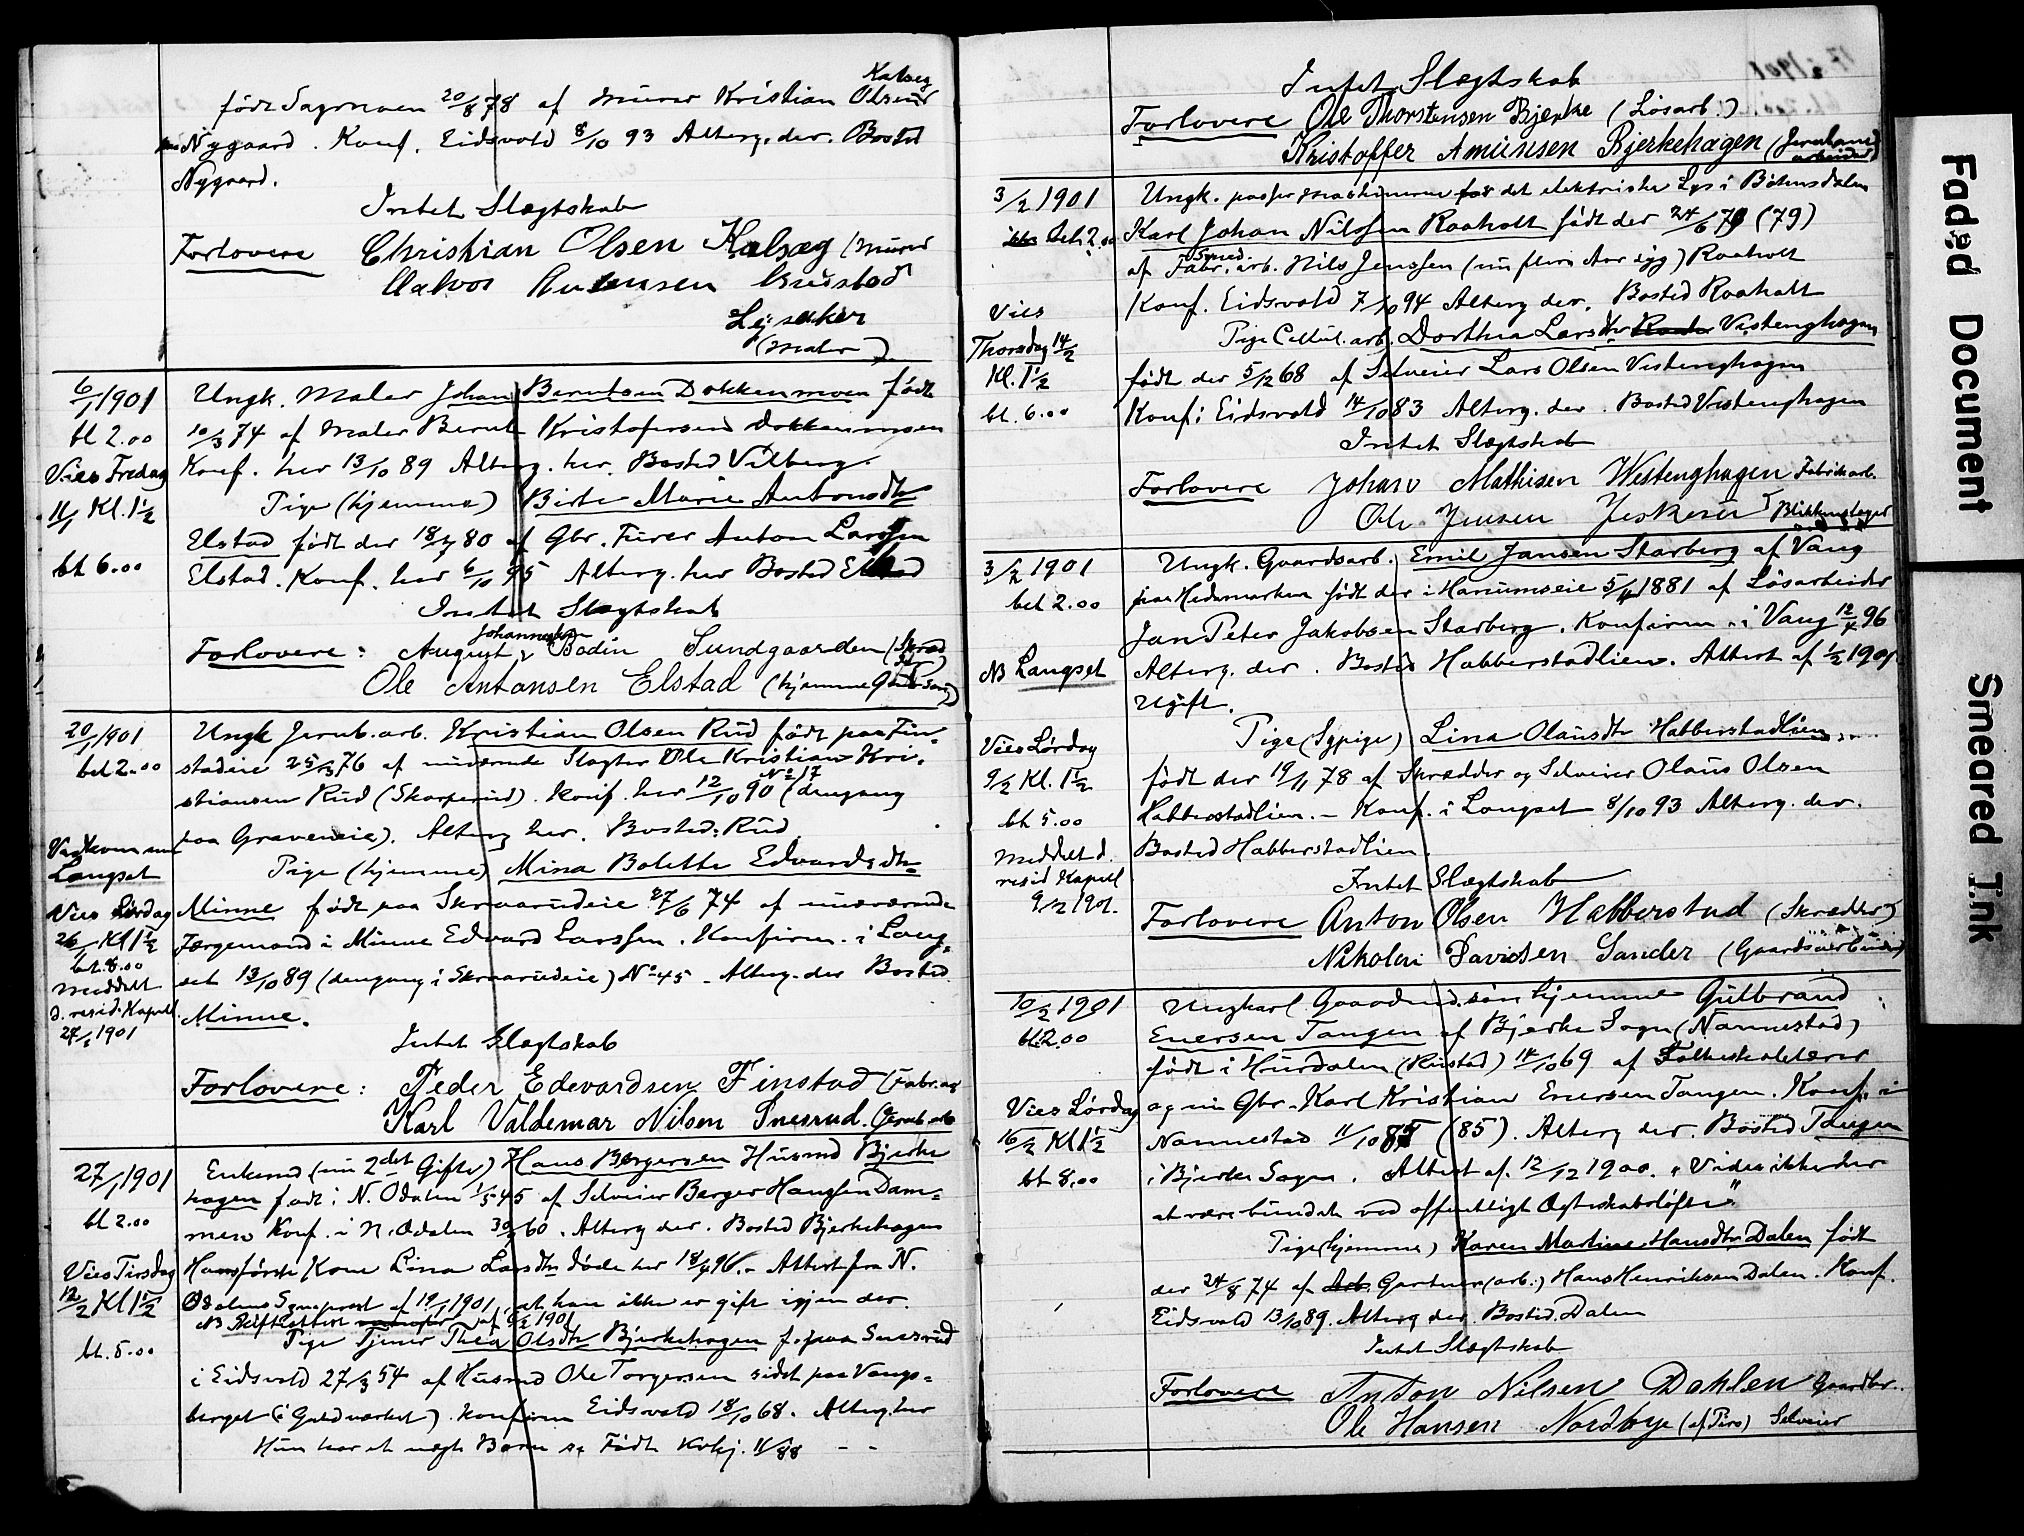 født Sagmoen 20/8 78 af Murer Kristian Olsen Kalvæg
Nygaard. Konf. Eidsvold 8/10 93 Alterg. der. Bosted
Nygaard.
Intet Slægtskab
Forlovere Christian Olsen Kalvæg (Murer
Lejsaker
(Maler)
6/1 1901
bt 2.00
Vies Fredag
11/1 Kl. 1½
bt 6.00
Ungk. Maler Johan Berntsen Dokkenmoen født
10/3 74 af Maler Bernt Kristofersen Dokkenmoen
Konf. her 13/10 89 Alterg. her. Bosted Vilberg.
Pige (hjemme) Birte Marie Antonsdtr
Elstad født der 18/7 80 af Gbr. Furer Anton Larssen
Elstad. Konf. her 6/10 95 Alterg. her Bosted Elstad
Intet Slægtskab
Forlovere: August Johannessen Bodin Sundgaarden (Skræd
Ole Antonsen Elstad (hjemme Gaardsarb)
20/1 1901
bet 2.00
Langset
Vies Lørdag
26/1 Kl 1½
bt. 8.00
Meddelt
d. resid. Kapell.
27/1 1901
Ungk Jernb. arb. Kristian Olsen Rud født paa Fin-
stadeie 25/3 76 af nuværende Slagter Ole Kristian Kri-
stiansen Rud (Skarperud). Konf. her 12/10 90 No 17 (dengang
paa Graveneie). Alterg her. Bosted: Rud
Pige (hjemme) Mina Bolette Edvardsdtr
Minne født paa Skraarudeie 27/6 74 af nuværende
Færgemand i Minne Edvard Larssen. Konfirm. i Lang-
set 13/10 89 (dengang i Skraarudeie) No 45 - Alterg. der Bosted
Minne.
Intet Slægtskab
Forlovere: Peder Edevardsen Finstad (Fabr. arb
Karl Valdemar Nilsen Snesrud. (Jernb. arb
27/1 1901
bt 2.00
Vies Tirsdag
12/2 Kl 1½
bt. 5.00
Enkemd (nu 2det Gifte) Hans Bergersen Husmd Bjerke
hagen født i N. Odalen 1/5 45 af Selveier Berger Hanssen Dam-
men Konf. i N. Odalen 30/9 60. Alterg der. Bosted Bjerkehagen
Hans første Kone Lina Larsdtr døde her 18/4 96. - Attest fra N.
Odalens Sogneprest af 19/1 1901, at han ikke er gift igjen der.
NB Skifteattest af 6/2 1901
Pige Tjener Thea Olsdtr Bjerkehagen f. paa Snesrud
i Eidsvold 27/3 54 af Husmd Ole Torgersen sidst paa Vangs-
berget (i Guldværket). Konfirm Eidsvold 18/10 68. Alterg. her
Hun har et uægte Barn
Intet Slægtskab
Forlovere Ole Thorstensen Bjerke (Løsarb.)
Kristoffer Amundsen Bjerkehagen (Jernbane
arbeider)
3/2 1901
bet 2.00
Vies
Thorsdag 14/2
Kl. 1½
bt. 6.00
Ungk. passer maskinerne for det elektriske Lys i Bøhnsdalen
Karl Johan Nilssen Raaholt født der 24/6 79 (79)
af Smed. Fabr. arb. Nils Jenssen (nu flere Aar syg) Raaholt
Konf. Eidsvold 7/10 94 Alterg der. Bosted Raaholt
Pige Cellul. arb. Dorthea Larsdtr Vestenghagen
født der 5/12 68 af Selveier Lars Olsen Vestenghagen
Konf: Eidsvold 14/10 83 Alterg. der. Bosted Vestenghagen
Intet Slægtskab
Forlovere Johan Mathisen Westenghagen Fabrikarb.
Ole Jensen Blikkenslager
3/2 1901
bet 2.00
NB Langset
Vies Lørdag
9/2 Kl. 1½
bt 5.00
Meddelt d.
resid Kapell
9/2 1901.
Ungk. Gaardsarb. Emil Jansen Starberg af Vang
paa Hedemarken født der i Hanumseie 5/11 1881 af Løsarbeider
Jan Peter Jakobsen Starberg. Konfirm. i Vang 12/4 96
Alterg. der. Bosted Habberstadlien. Attest af 1/2 1901
Ugift.
Pige (Sypige) Lina Olausdtr Habberstadlien
født der 19/11 78 af Skrædder og Selveier Olaus Olsen
Habberstadlien. - Konf. i Langset 8/10 93 Alterg. der.
Bosted Habberstadlien.
Intet Slægtskab
Forlovere Anton Olsen Habberstad (Skrædder)
Nikolai Davidsen Sander (Gaardsarbeider)
10/2 1901
bt 2.00
Vies Lørdag
16/2 Kl 1½
bt 8.00
Ungkarl Gaardmd. søn hjemme Gulbrand
Enersen Tangen af Bjerke Sogn (Nannestad)
født i Hurdalen (Rustad) 14/10 69 af Folkeskolelærer
og nu Gbr. Karl Kristian Enersen Tangen. Konf. i
Nannestad 11/10 85 (85). Alterg der. Bosted Tangen
i Bjerke Sogn. Attest af 12/12 1900. "Vides ikke her
at være bundet ved offentligt Ægteskabsløfte"
Pige (hjemme) Karen Martine Hansdtr Dalen født
der 24/8 74 af Gartner (arb.) Hans Henriksen Dalen. Konf.
Eidsvold 13/10 89. Alterg der. Bosted. Dalen
Intet Slægtskab
Forlovere Anton Nilsen Dahlen Gaardbr.
Ole Hansen Nordbye (af Pers) Selveier
Faded Document
Smeared Ink